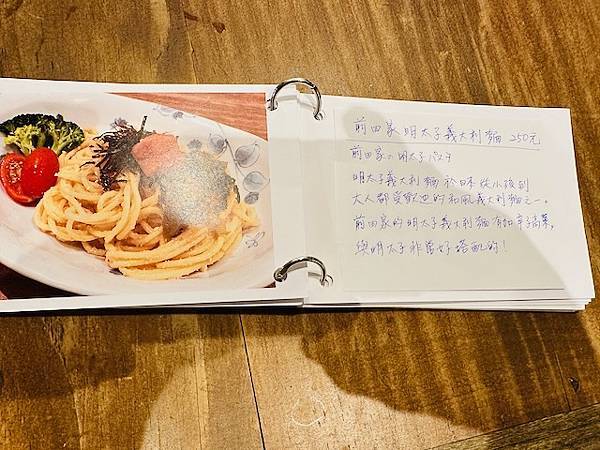 前田家 明太子義大利麵 250元
前田家の明太子パスタ
明太子義大利麵 於日本從小孩到
大人都受歡迎的和風義大利麵之一。
前田家的明太子義大利麵有加辛子高菜,
與明太子非常好搭配的!